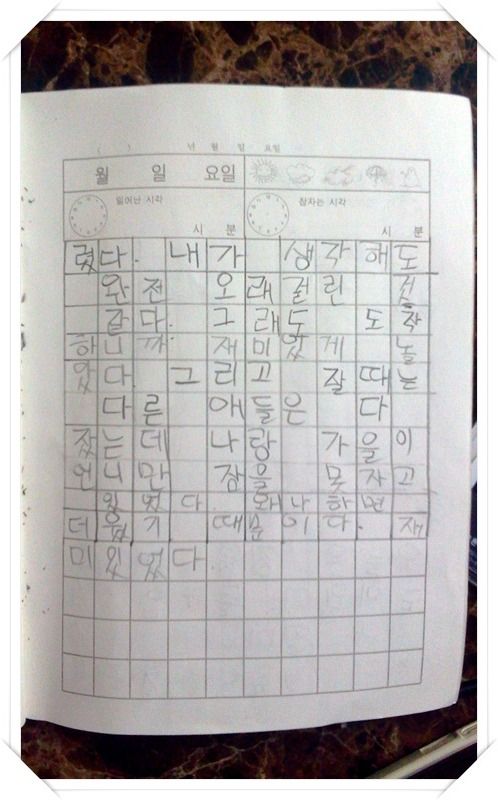 ( ) 년 월 일 요일
월 일 요일
일어난 시각 잠자는 시각
시 분 시 분
렸다. 내가 생각해도
완전 오래걸린 것
같다. 그래도 도착
하니까 재미있게 놀
았다. 그리고 잘때는
다른 애들은 다
잤는데 나랑 가을이
언니만 잠을 못자고
있었다 왜냐하면
더웠기 때문이다. 재
미있었다